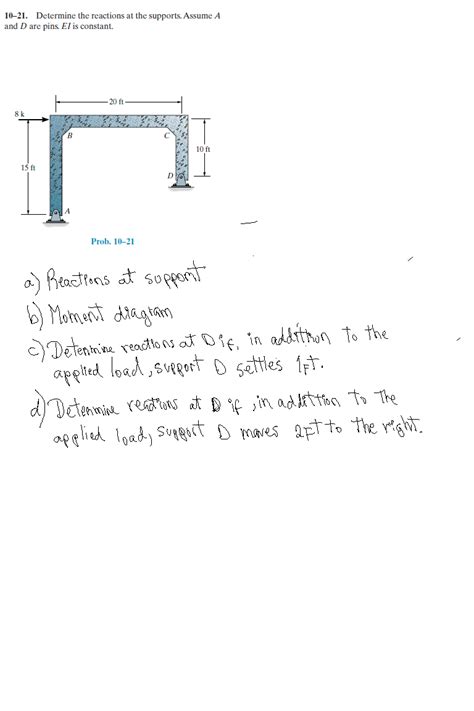 10–21. Determine the reactions at the supports. Assume A
and D are pins. EI is constant.
20 ft
8 k
B
C
10 ft
15 ft
D
A
Prob. 10–21
a) Reactions at support
b) Moment diagram
c) Determine reactions at D if, in addition to the
applied load, support D settles 1FT.
d) Determine reactions at D if, in addition to the
applied load, support D moves 2FT to the right.